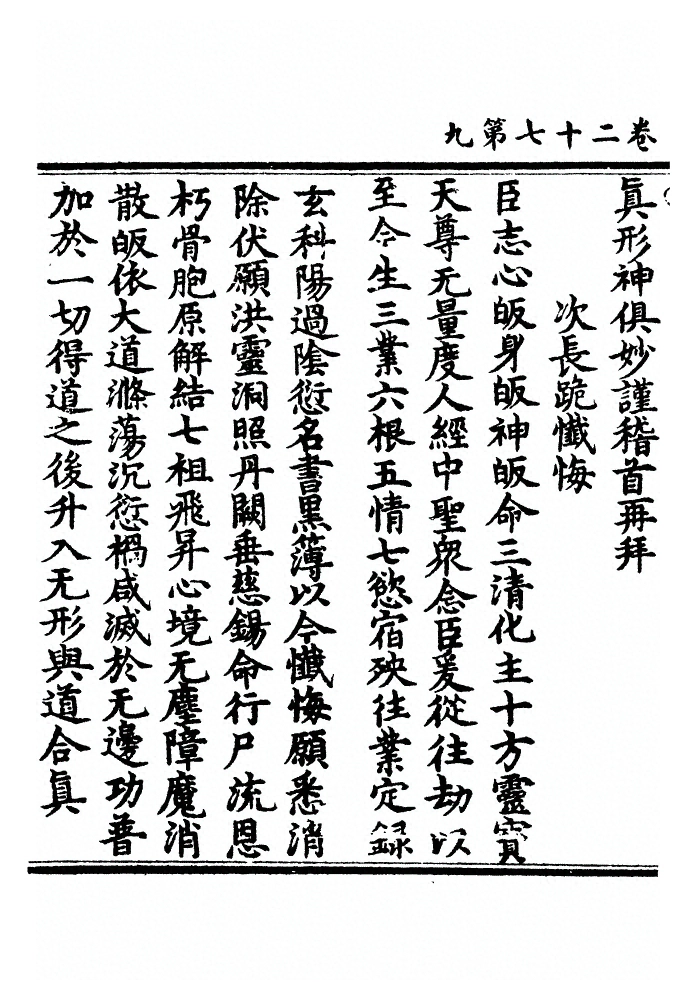 九第七十二卷
眞形神俱妙謹稽首再拜
次長跪懺悔
臣志心皈身皈神皈命三清化主十方靈寶
天尊无量度人經中聖衆念臣爰從往劫以
至今生三業六根五情七慾宿殃往業定録
玄科陽過陰愆名書黑簿以今懺悔願悉消
除伏願洪靈洞照丹闕垂慈錫命行尸流恩
朽骨胞原解結七祖飛昇心境无塵障魔消
散皈依大道滌蕩沉愆禍咸滅於无邊功普
加於一切得道之後升入无形與道合眞